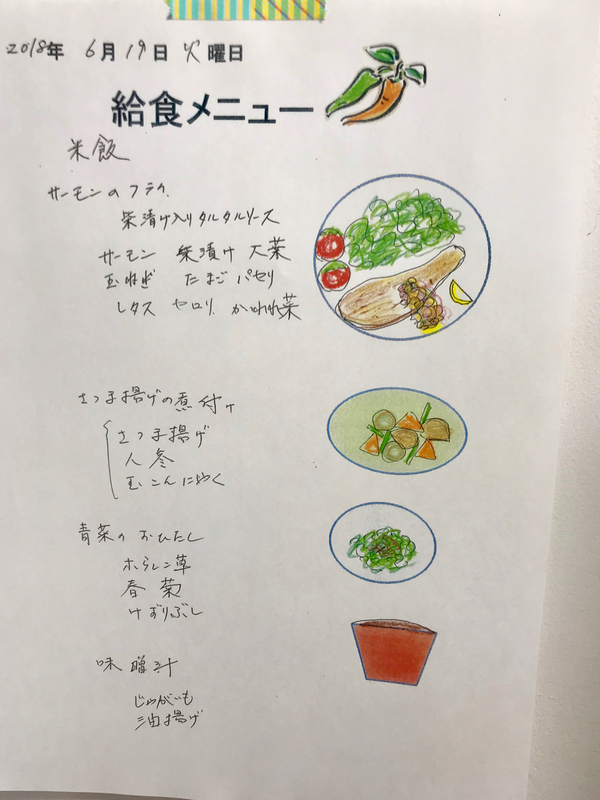 2018年 6月19日 火曜日
給食メニュー
米飯
サーモンのフライ
柴漬け入りタルタルソース
サーモン 柴漬け 大葉
玉ねぎ たまご パセリ
レタス セロリ かいわれ菜
さつま揚げの煮付け
さつま揚げ
人参
玉こんにゃく
青菜のおひたし
ホーレン草
春菊
けずりぶし
味噌汁
じゃがいも
油揚げ